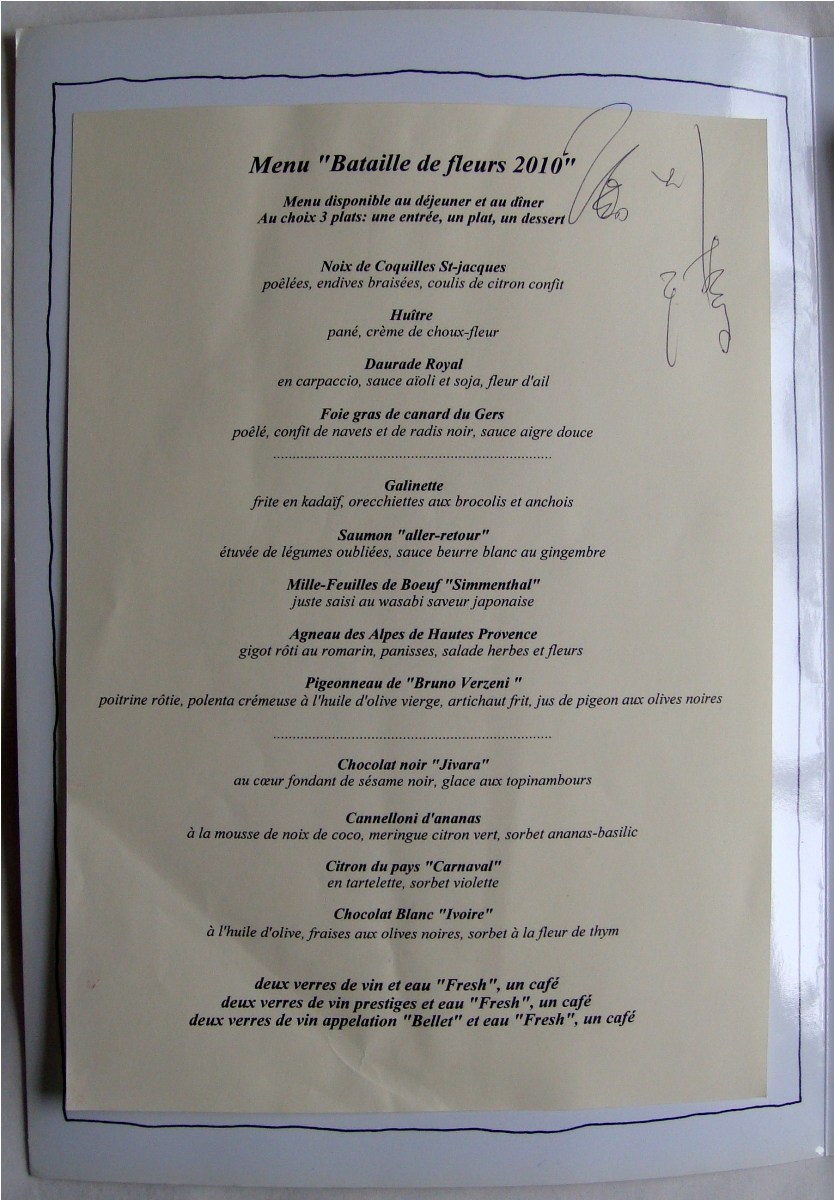 Menu "Bataille de fleurs 2010"
Menu disponible au déjeuner et au dîner
Au choix 3 plats: une entrée, un plat, un dessert
Noix de Coquilles St-jacques
poêlées, endives braisées, coulis de citron confit
Huître
pané, crème de choux-fleur
Daurade Royal
en carpaccio, sauce aïoli et soja, fleur d'ail
Foie gras de canard du Gers
poêlé, confit de navets et de radis noir, sauce aigre douce
Galinette
frite en kadaïf, orecchiettes aux brocolis et anchois
Saumon "aller-retour"
étuvée de légumes oubliées, sauce beurre blanc au gingembre
Mille-Feuilles de Boeuf "Simmenthal"
juste saisi au wasabi saveur japonaise
Agneau des Alpes de Hautes Provence
gigot rôti au romarin, panisses, salade herbes et fleurs
Pigeonneau de "Bruno Verzeni "
poitrine rôtie, polenta crémeuse à l'huile d'olive vierge, artichaut frit, jus de pigeon aux olives noires
Chocolat noir "Jivara"
au cœur fondant de sésame noir, glace aux topinambours
Cannelloni d'ananas
à la mousse de noix de coco, meringue citron vert, sorbet ananas-basilic
Citron du pays "Carnaval"
en tartelette, sorbet violette
Chocolat Blanc "Ivoire"
à l'huile d'olive, fraises aux olives noires, sorbet à la fleur de thym
deux verres de vin et eau "Fresh", un café
deux verres de vin prestiges et eau "Fresh", un café
deux verres de vin appelation "Bellet" et eau "Fresh", un café